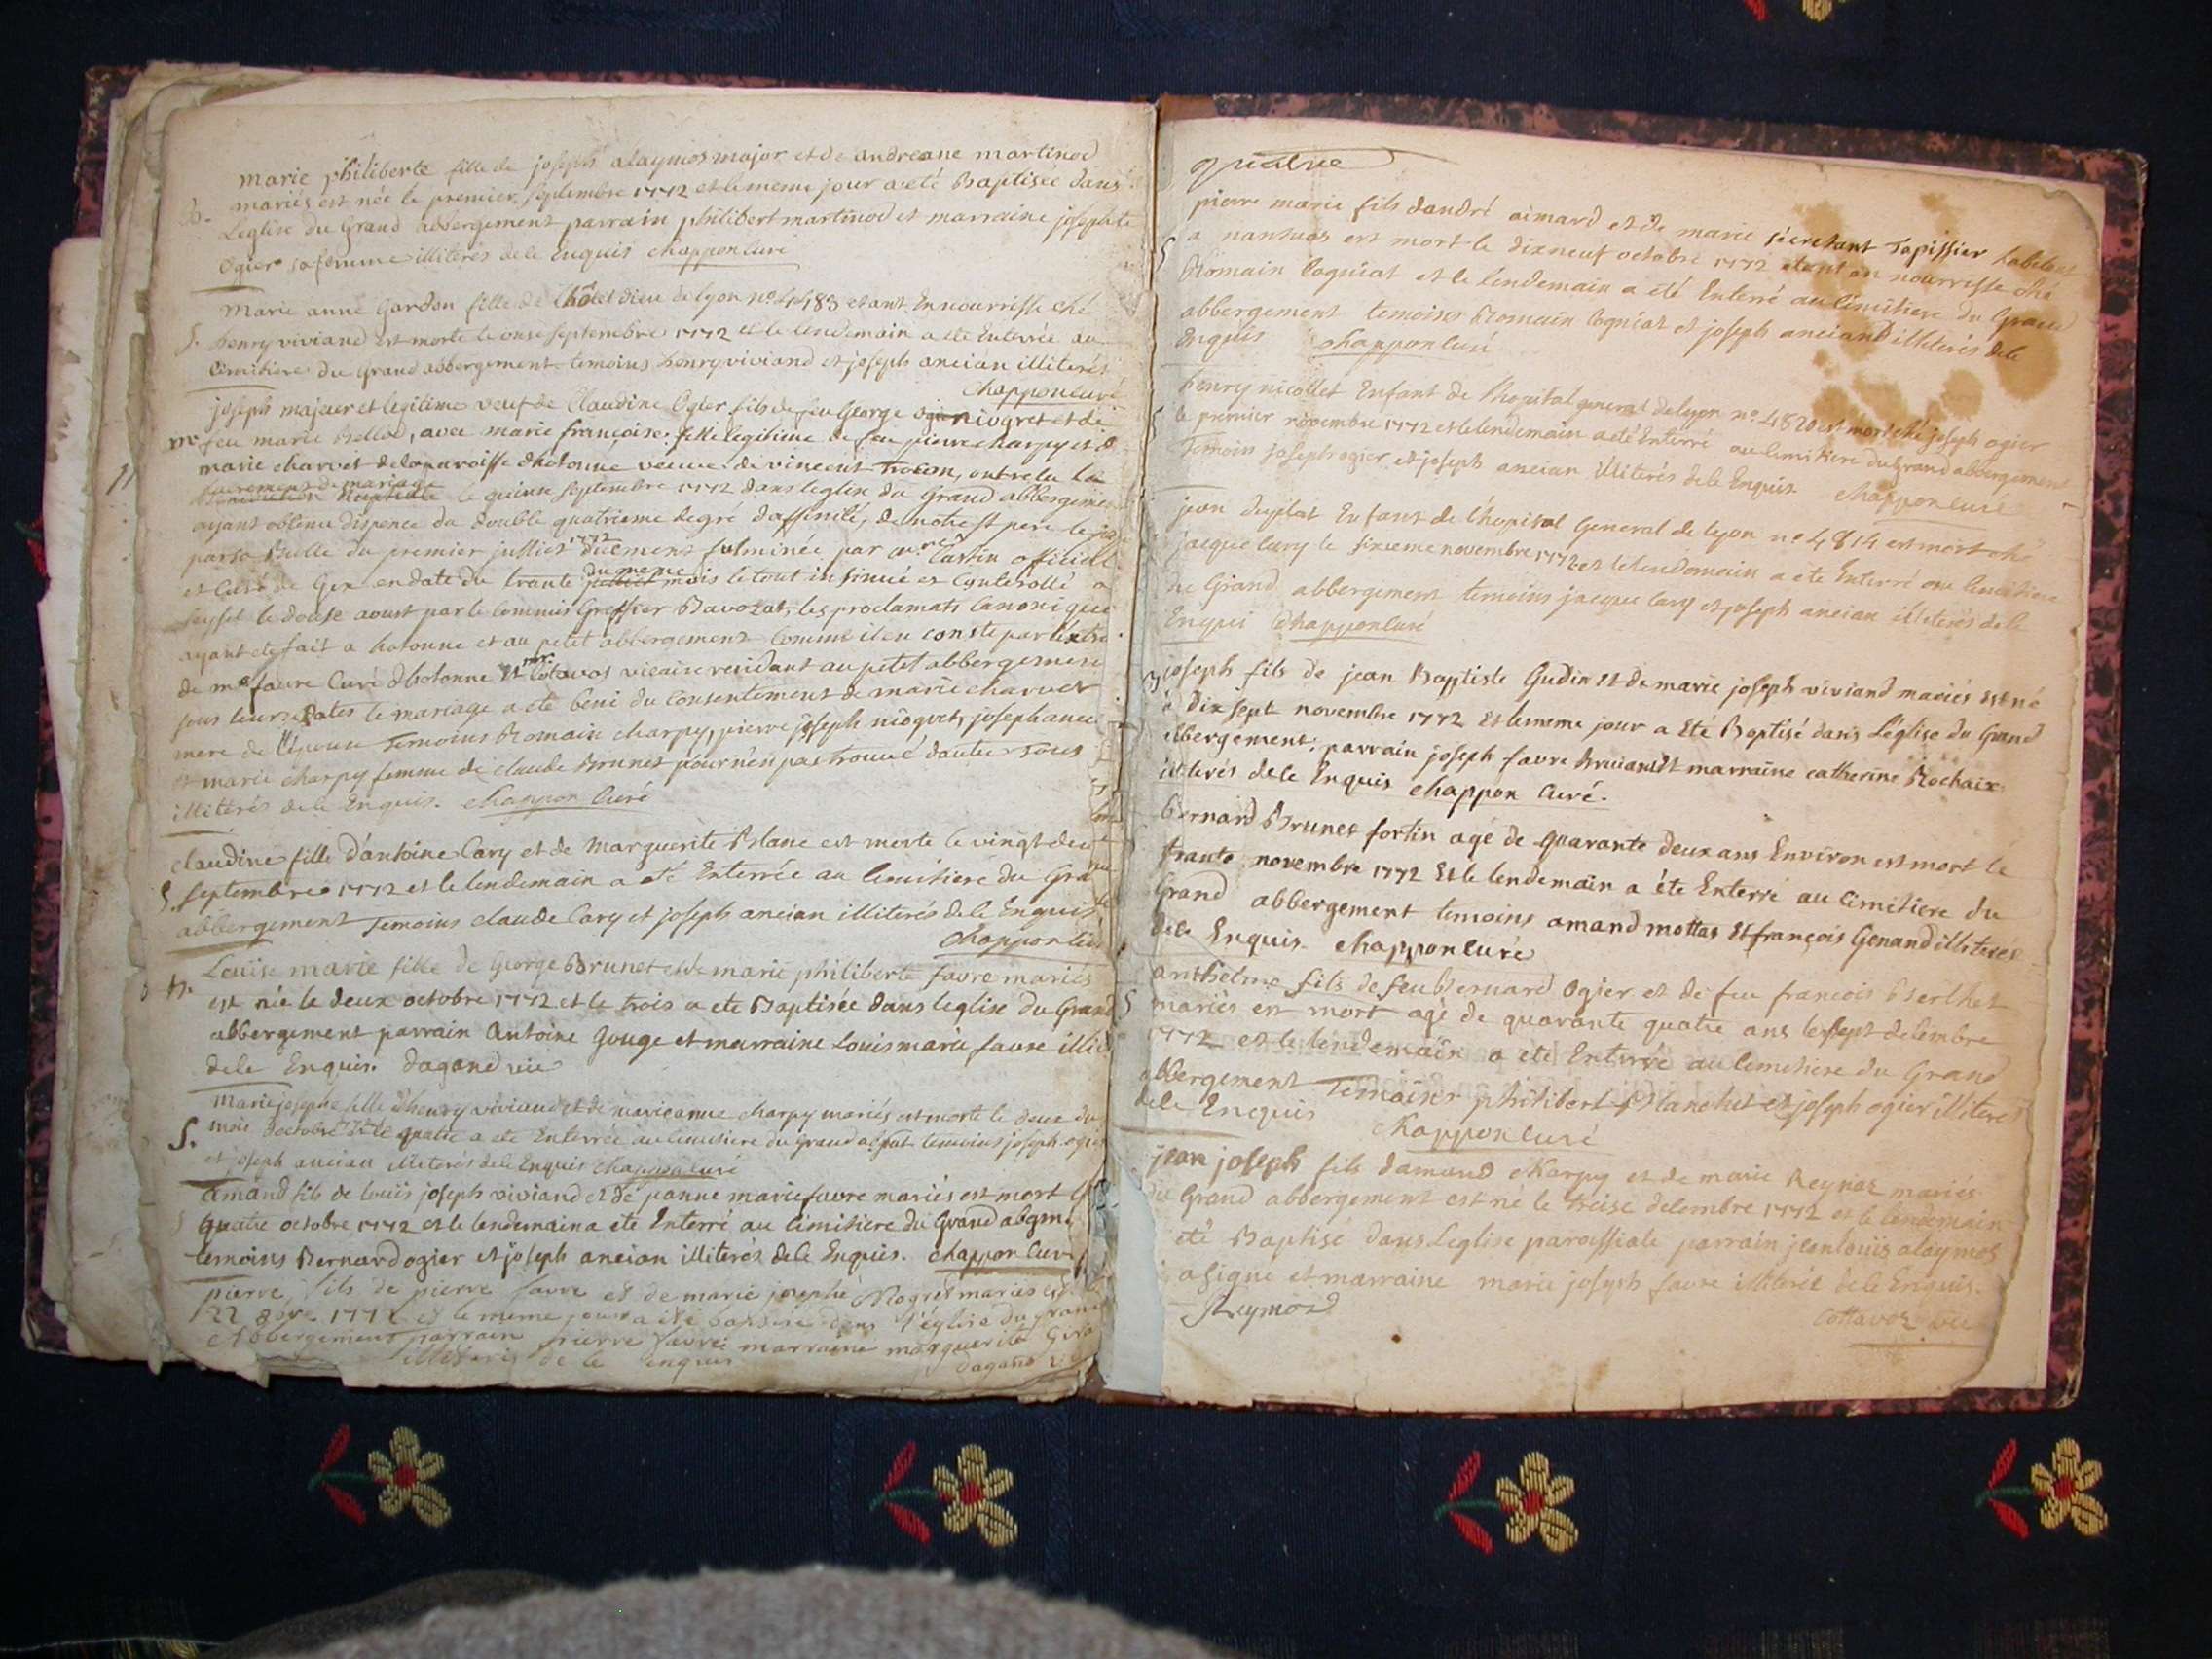 marie philiberte fille de joseph alaymos major et de andreane martinod
mariés est née le premier septembre 1772 et le meme jour a eté Baptisée dans
b. Leglise du Grand abbergement parrain philibert martinod et marraine josephte
Ogier sa femme illiterés dele Enquis chappon curé
marie anne Gardon fille de lhôtel dieu de lyon n° etant En nourrisse ché
S. henry viviand Est morte le onse septembre 1772 et le lendemain a ete Enterrée au
cimitiere du Grand abbergement temoins henry viviand et joseph ancian illiterés
chappon curé
joseph majeur et legitime veuf de Claudine Ogier fils de feu George niogret et de
m. feu marie Bellod, avec marie françoise fille legitime de feu pierre charpy et de
marie charvet de la paroisse dhotonne veuve de vincent trocon, ont recu la
sacrement de mariage
Benediction Nuptiale le quinse septembre 1772 dans leglise du Grand abbergement
ayant obtenu dispence du double quatrieme degré daffinité, de notre st pere le
par sa Bulle du premier juillet 1772 duement fulminée par Castin officiel
et Curé de Gex en date du trante du meme mois le tout insinué et Controllé a
seyssel le douse aoust par le commis Greffier Bavozat, les proclamats Canoniques
ayant ete fait a hotonne et au petit abbergement comme il en conste par lextrait
de mr favre Curé dhotonne et mr Cottavos vicaire residant au petit abbergement
sous leurs dates le mariage a eté beni du consentement de marie charvet
mere de l'épouse Temoins Romain charpy, pierre joseph niogret, joseph ancian
et marie charpy femme de claude Brunet pour nén pas trouvé dautre tous
illiterés dele Enquis. chappon Curé
claudine fille d'antoine Cary et de marguerite Blanc est morte le vingt deux
S. septembre 1772 et le lendemain a eté Enterrée au Cimitiere du Grand
abbergement Temoins claude Cary et joseph ancian illiterés dele Enquis
chappon curé
b. Louise marie fille de George Brunet et de marie philiberte favre mariés
est née le deux octobre 1772 et le trois a ete Baptisée dans leglise du Grand
abbergement parrain Antoine Gouge et marraine Louis marie favre
dele Enquis. dagand vic
marie josephe fille dhenry viviand et de marie anne charpy mariés est morte le deux du
S. mois doctobre et le quatre a ete Enterrée au cimitiere du Grand temoins joseph ogier
et joseph ancian illiterés dele Enquis chappon curé
amand fils de louis joseph viviand et de jeanne marie favre mariés est mort le
quatre octobre 1772 et le lendemain a ete Enterré au cimitiere du Grand
temoins Bernard ogier et joseph ancian illiterés dele Enquis. chappon curé
pierre fils de pierre favre et de marie josephe Niogret mariés est
22 1772 et le meme jour a été batisé dans l'église du Grand
abbergement parrain pierre favre marraine marguerite
illiterés de le enquis dagand vic
quatre
pierre marie fils dandré aimard et de marie tapissier habitant
S a nantuas est mort le dixneuf octobre 1772 etant en nourrisse ché
Romain Cogniat et le lendemain a été Enterré au Cimitiere du Grand
abbergement temoins Romain Cogniat et joseph anciand illiterés dele
Enquis chappon Curé
henry nicollet Enfant de lhopital general de lyon n° 4820 est mort ché joseph ogier
S le premier novembre 1772 et le lendemain a été Enterré au Cimitiere du Grand abbergement
Temoin joseph ogier et joseph ancian illiterés dele Enquis chappon curé
jean duplat Enfant de lhopital General de lyon n° 4814 est mort ché
jacque Cary le sixieme novembre 1772 et le lendemain a ete Enterré au Cimitiere
du Grand abbergement temoins jacque Cary et joseph ancian illiterés dele
Enquis Chappon Curé
B joseph fils de jean Baptiste Gudin et de marie joseph viviand mariés est né
le dix sept novembre 1772 Et le meme jour a Eté Baptisé dans Léglise du Grand
abbergement; parrain joseph favre et marraine catherine Rochaix
illiterés dele Enquis chappon Curé.
bernard Brunet fortin agé de quarante deux ans Environ est mort le
trante novembre 1772 Et le lendemain a éte Enterré au Cimitiere du
Grand abbergement temoins amand mottas Et françois Genand illiteres
dele Enquis. chappon Curé
anthelme fils de feu Bernard Ogier et de feu francois Berthet
S mariés est mort agé de quarante quatre ans le sept decembre
1772 et le lendemain a ete Enterré au Cimitiere du Grand
abbergement Temoins philibert Blanchet et joseph ogier illiteres
dele Enquis chappon Curé
jean joseph fils damand charpy et de marie Reynaz mariés
du Grand abbergement est né le treise decembre 1772 et le lendemain
eté Baptisé dans Leglise paroissiale parrain jean louis alaymos
a signé et marraine marie joseph favre illiterée dele Enquis.
Reymond Cottavoz vic